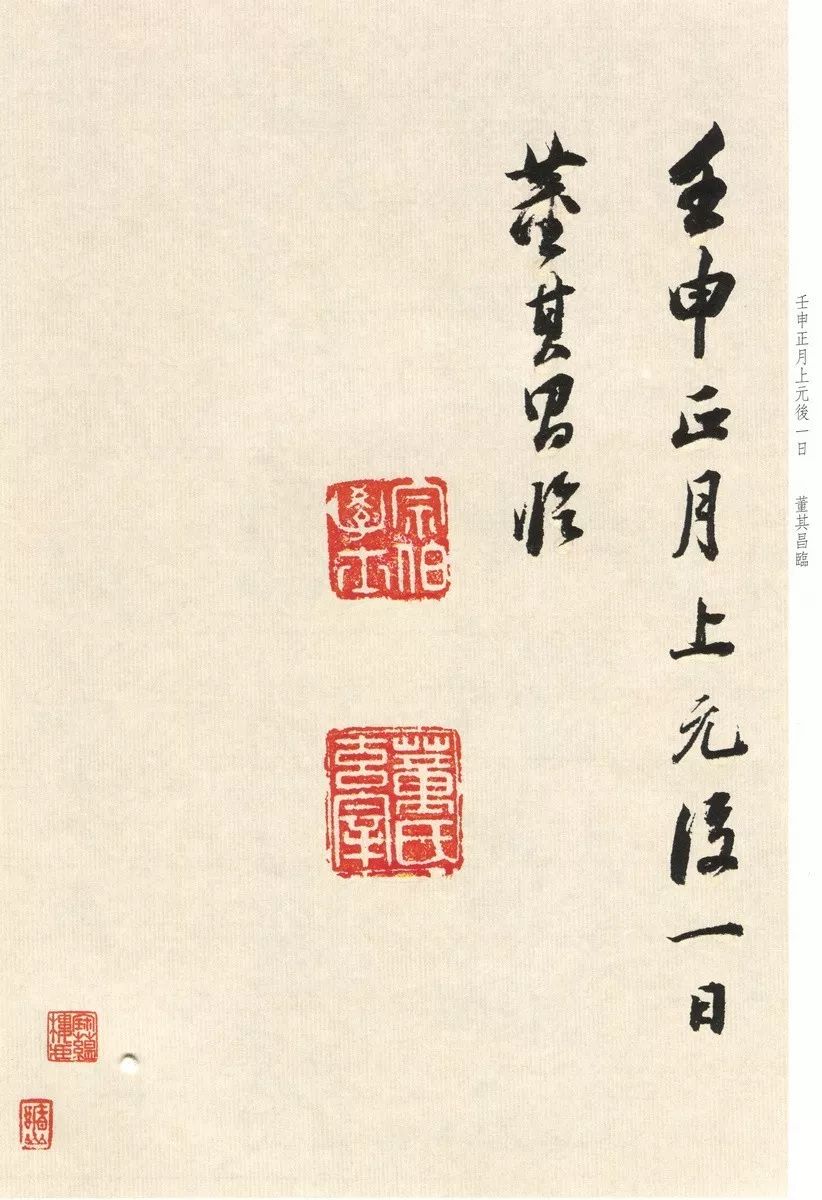 壬申正月上元後一日
董其昌臨
宗伯學士
董氏玄宰
壬申正月上元後一日 董其昌臨